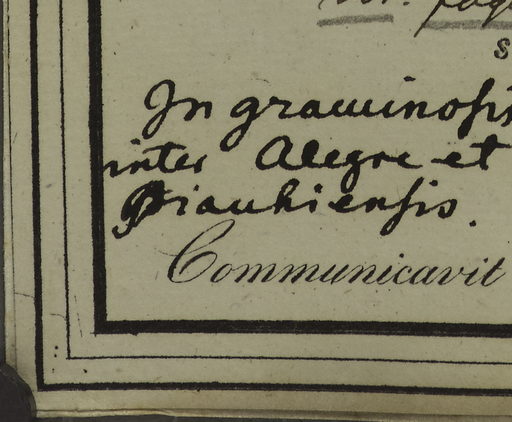 S
In graminosis
inter Alegre et
Piauhiensis.
Communicavit